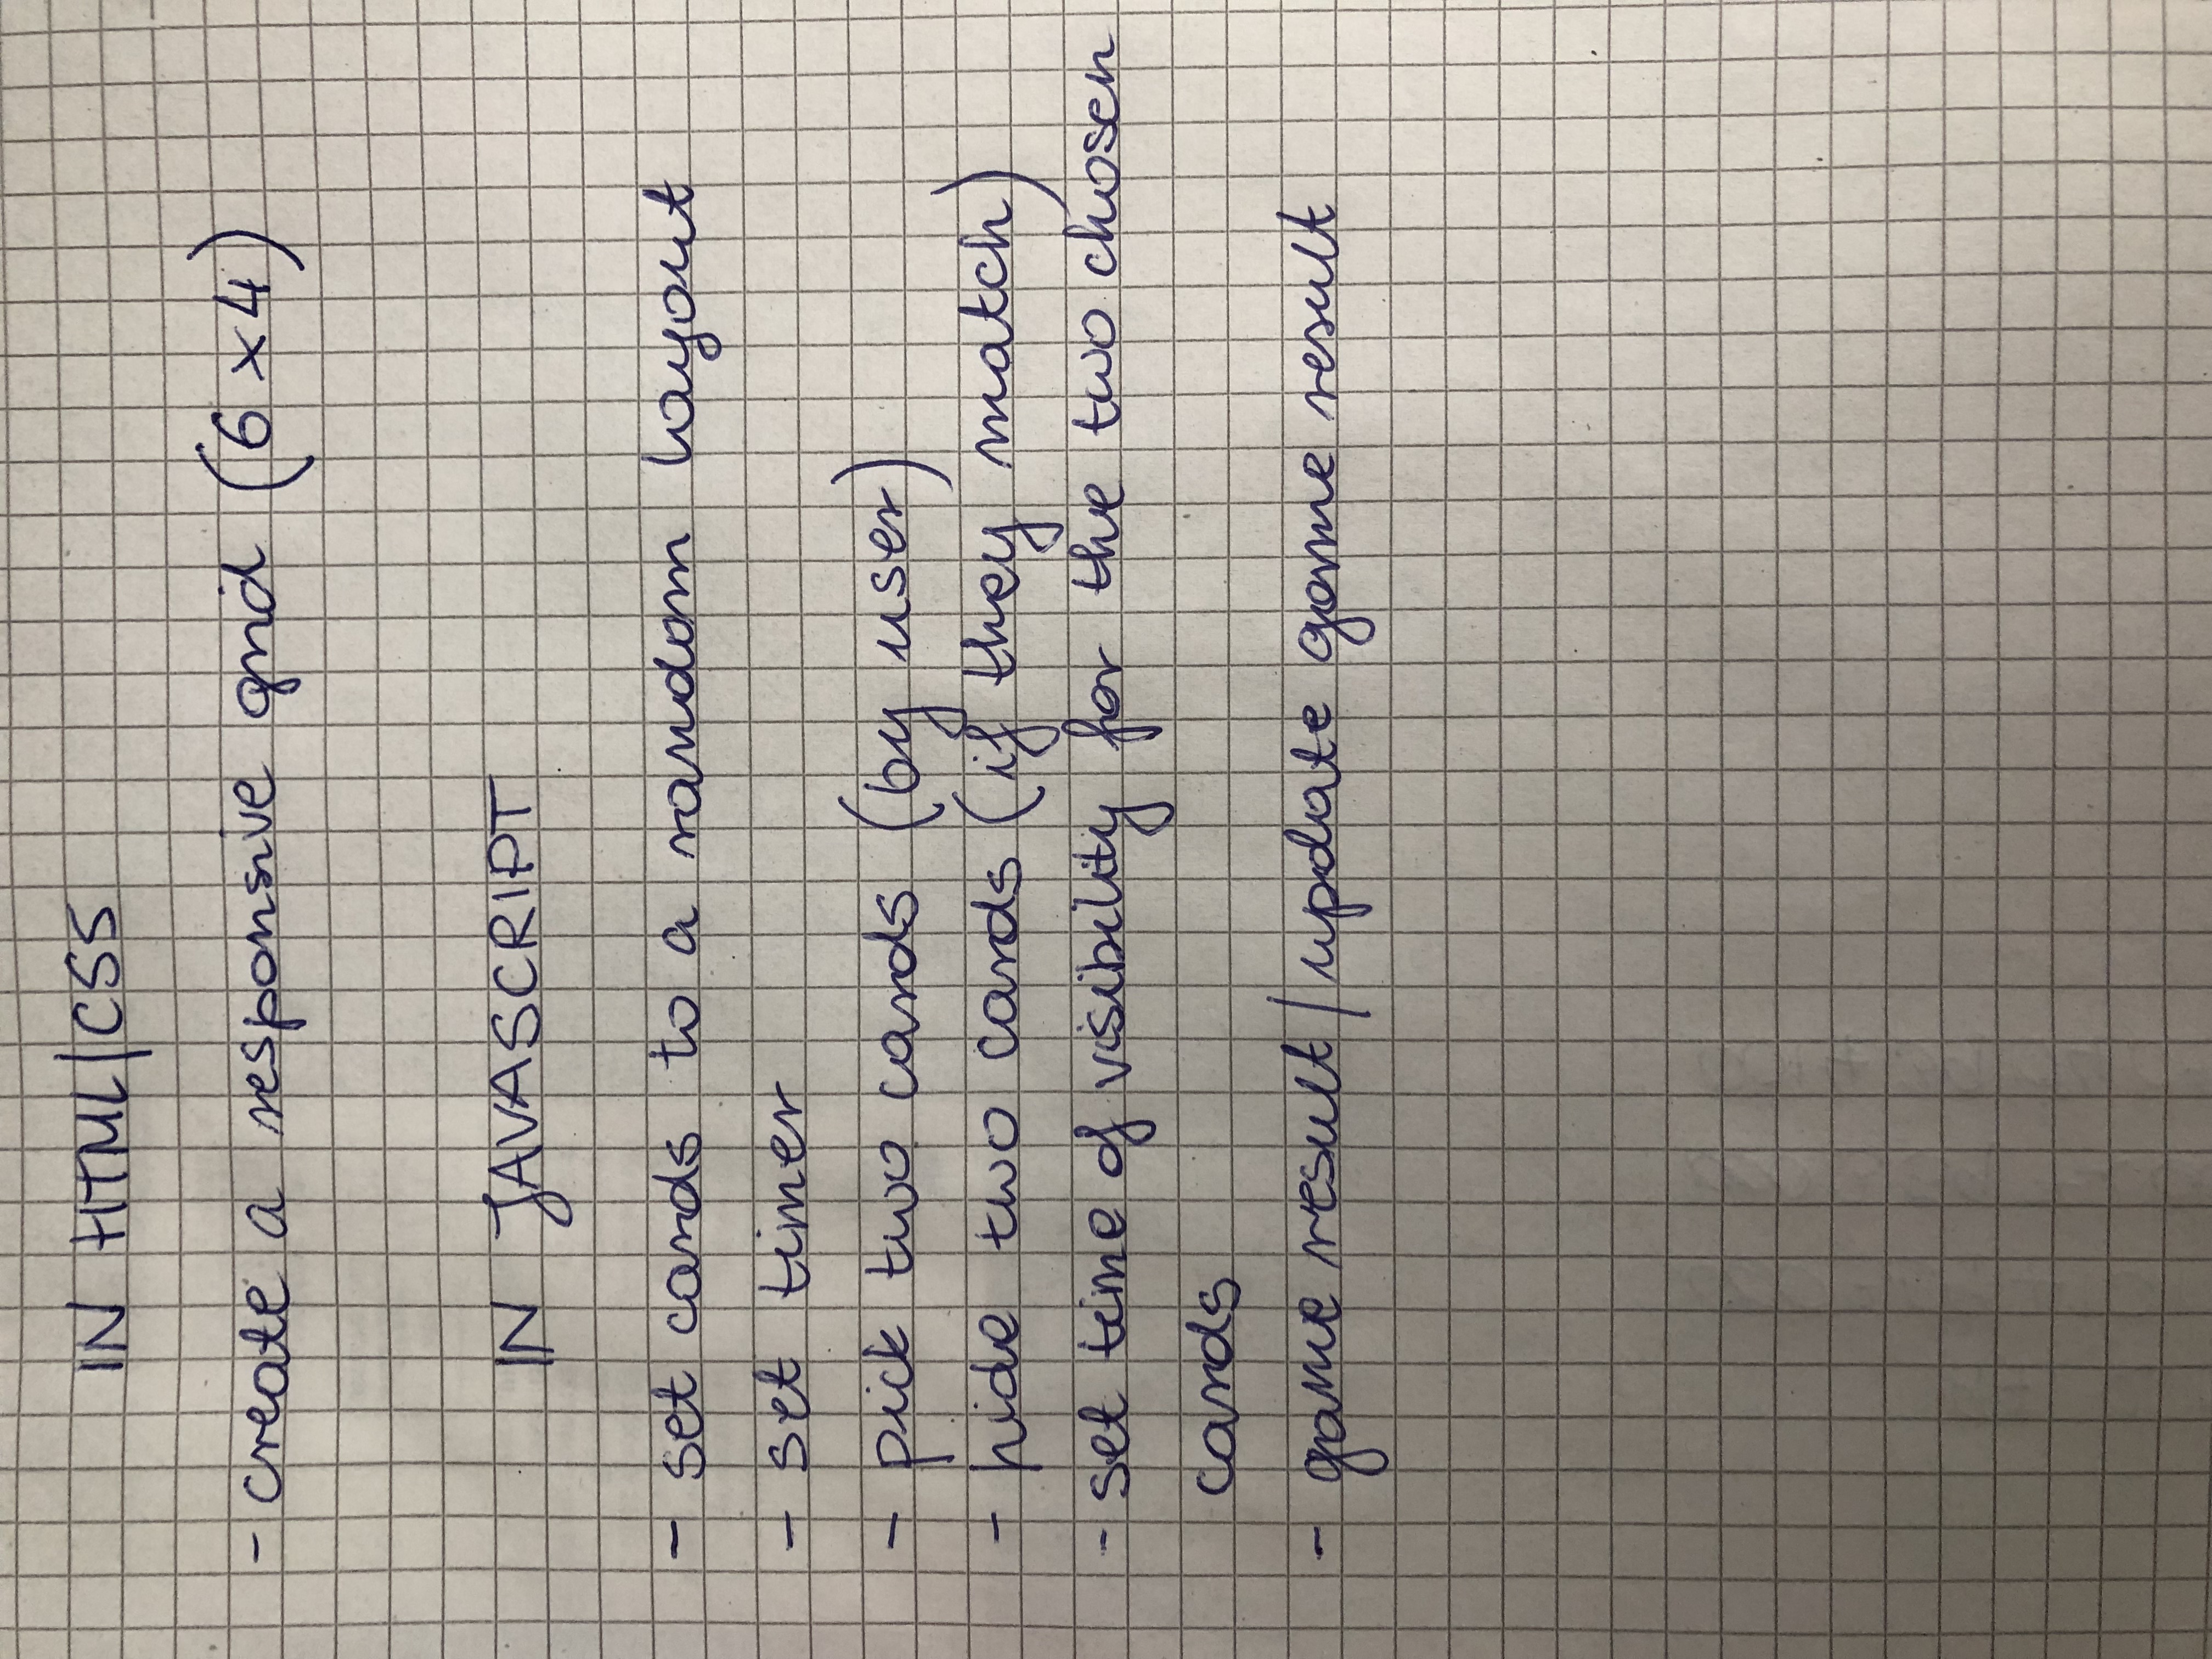 IN HTML/CSS
- create a responsive grid (6x4)
IN JAVASCRIPT
- set cards to a random layout
- set timer
- pick two cards (by user)
- hide two cards (if they match)
- set time of visibility for the two chosen
cards
- game result / update game result